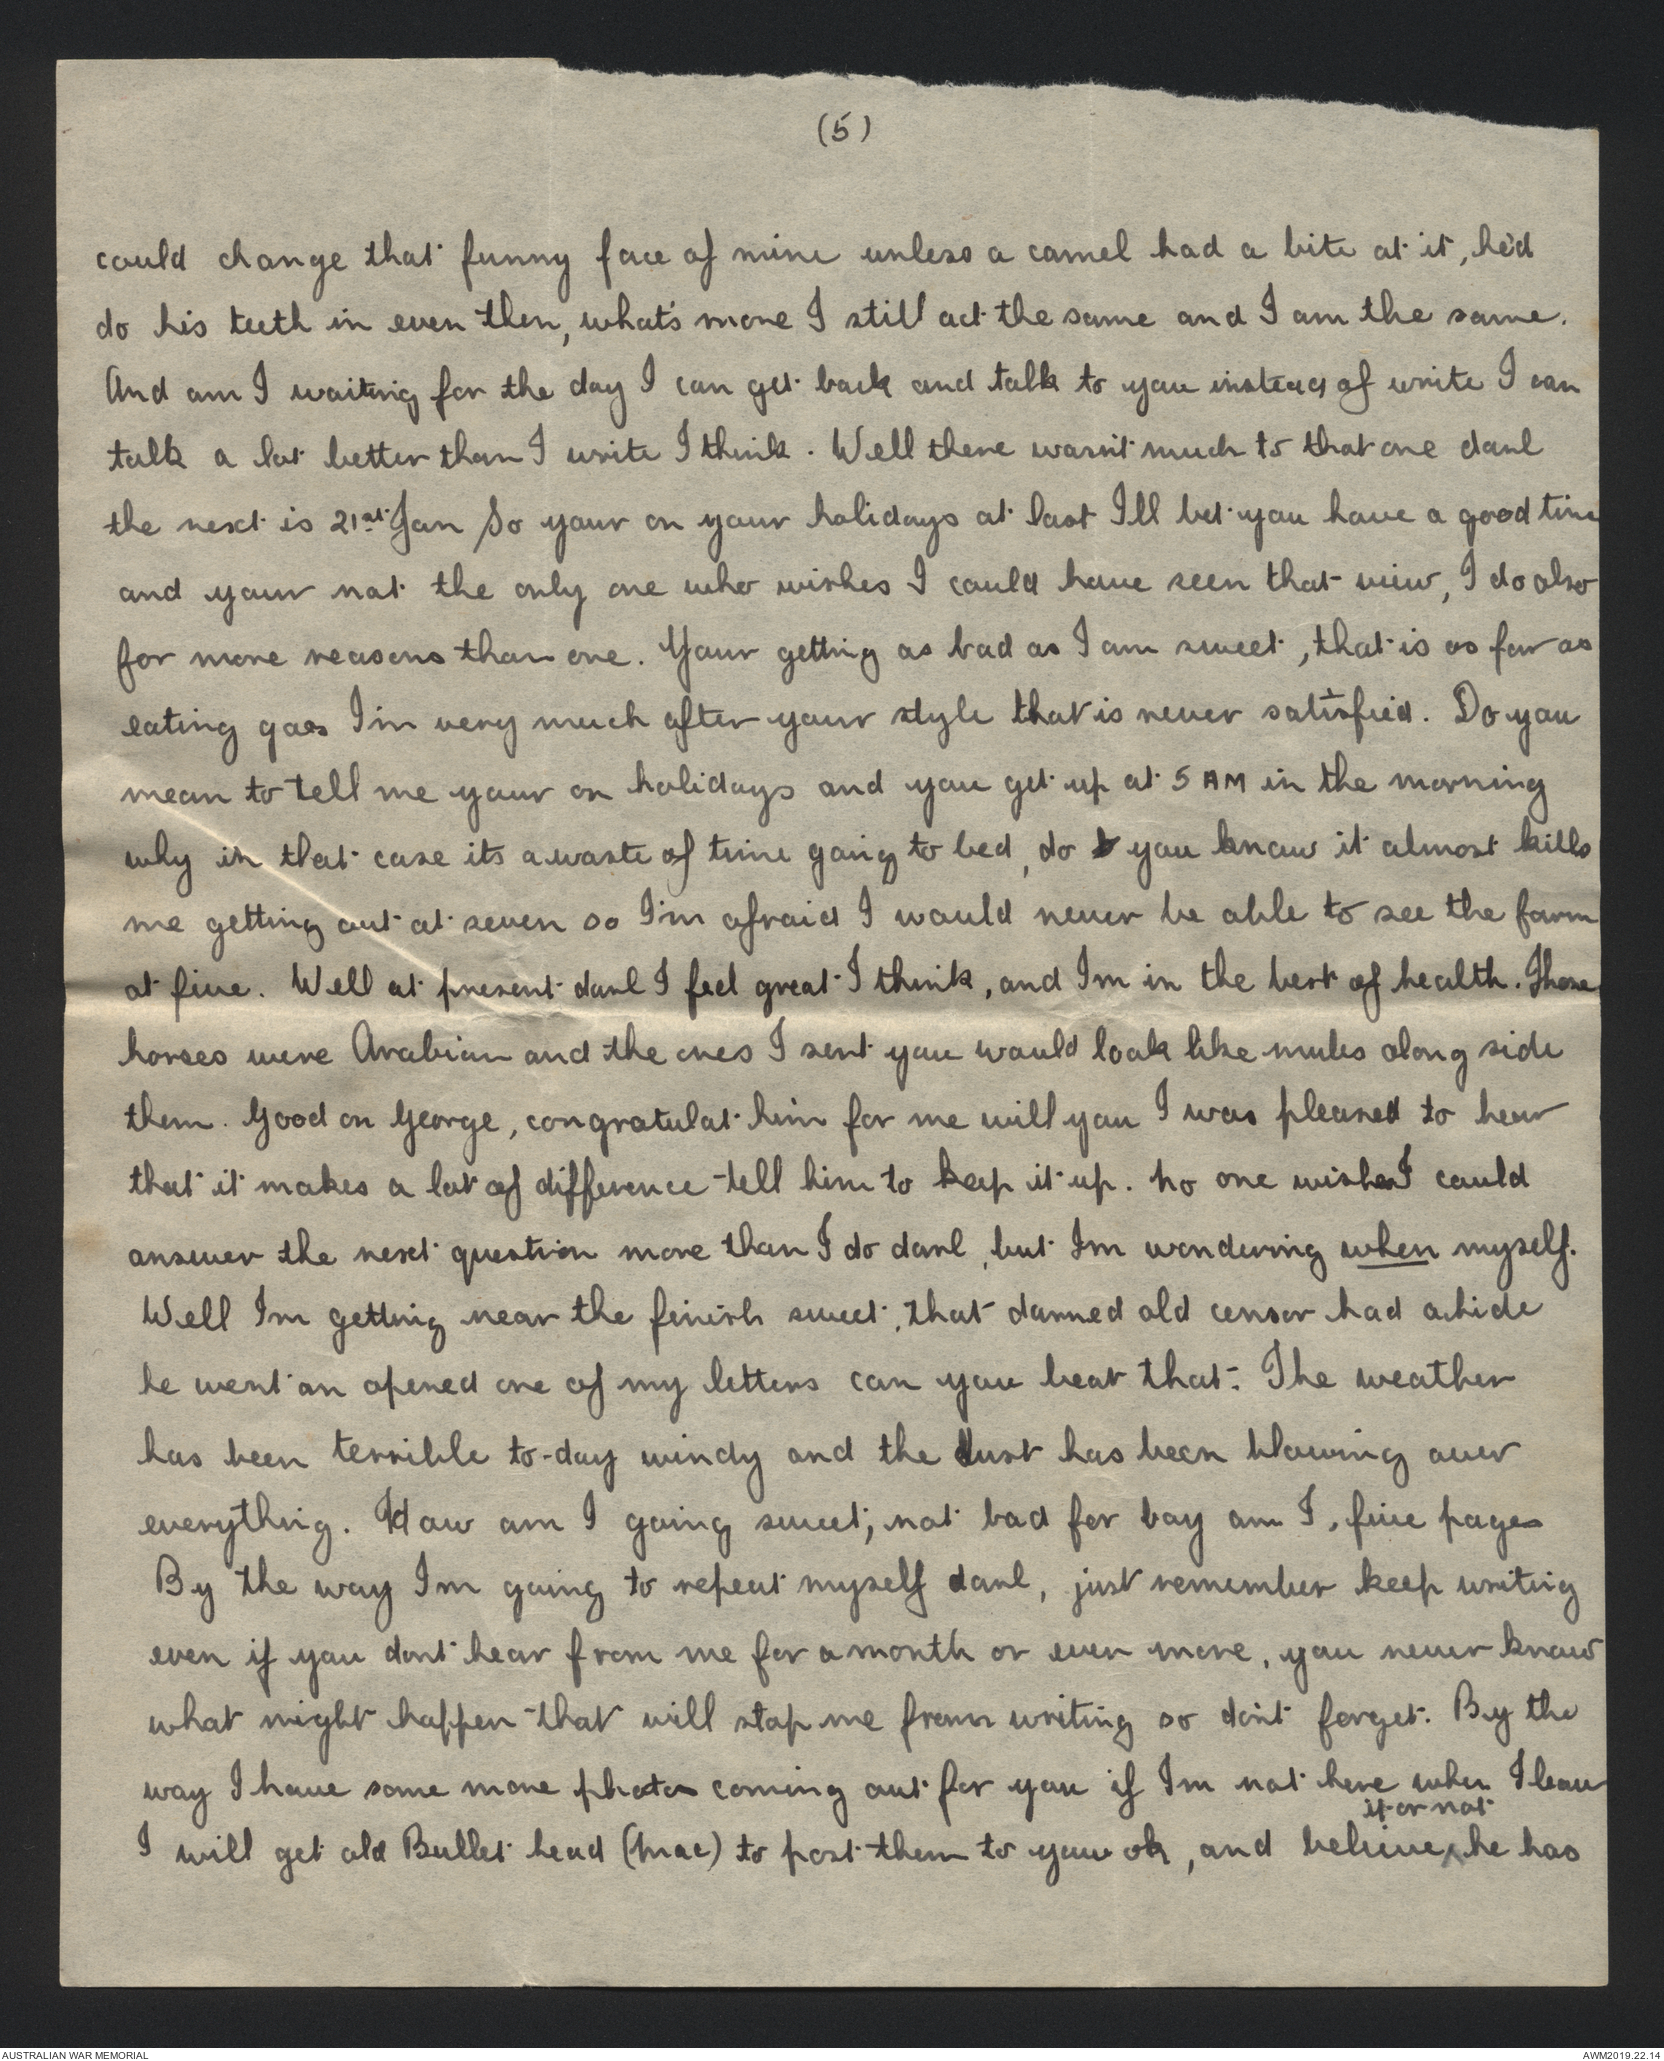 (5)
could change that funny face of mine unless a camel had a bite at it, he'd
do his teeth in even then, what's more I still act the same and I am the same.
And am I waiting for the day I can get back and talk to you instead of write I can
talk a lot better than I write I think. Well there wasn't much to that one darl
the next is 21st Jan So your on your holidays at last I'll bet you have a good time
and your not the only one who wishes I could have seen that view, I do also
for more reasons than one. Your getting as bad as I am sweet, that is as far as
eating goes I'm very much after your style that is never satisfied. Do you
mean to tell me your on holidays and you get up at 5 AM in the morning
why in that case its a waste of time going to bed, do you know it almost kills
me getting out at seven so I'm afraid I would never be able to see the farm
at five. Well at present darl I feel great I think, and I'm in the best of health. Those
horses were Arabian and the ones I sent you would look like mules along side
them. Good on George, congratulat him for me will you I was pleased to hear
that it makes a lot of difference tell him to keep it up. No one wishes I could
answer the next question more than I do darl, but Im wondering when myself.
Well Im getting near the finish sweet, that darned old censor had a hide
he went an opened one of my letters can you beat that. The weather
has been terrible to-day windy and the dust has been blowing over
everything. How am I going sweet, not bad for boy am I, five pages
By the way Im going to repeat myself darl, just remember keep writing
even if you dont hear from me for a month or even more, you never know
what might happen that will stop me from writing so don't forget. By the
way I have some more photos coming out for you if Im not here when I leave
it or not
I will get old Bullet head (Mac) to post them to you ok, and believe ^ he has
AUSTRALIAN WAR MEMORIAL
AWM2019.22.14